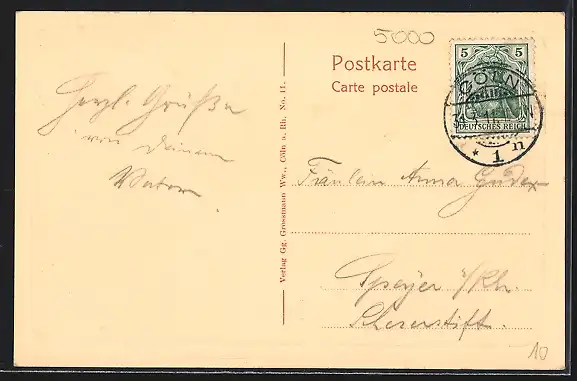 5000
Postkarte
Carte postale
5 5
DEUTSCHES REICH
CÖLN
* 1 n
Herzl. Grüße
von Deinem
Vater
Verlag Gg. Grossmann Ww., Cöln a. Rh. No. 41.
Fräulein Anna
Speyer a/Rh.
Schererstift.
10